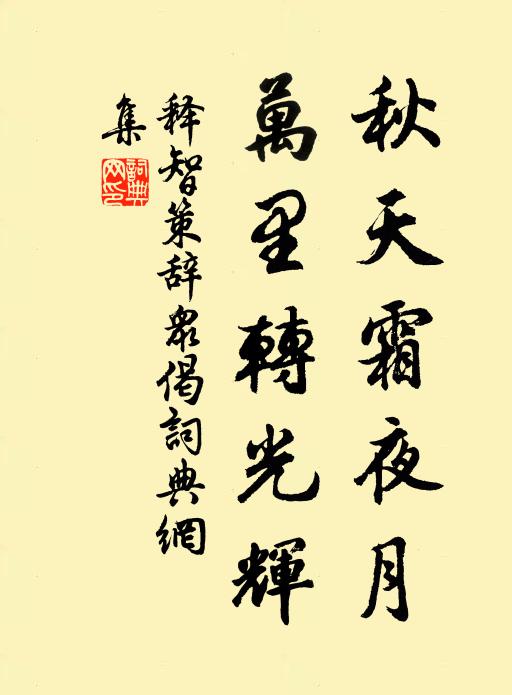 秋天霜夜月
萬里轉光輝
释智策辞眾偈詞典網
集
詞典
网印